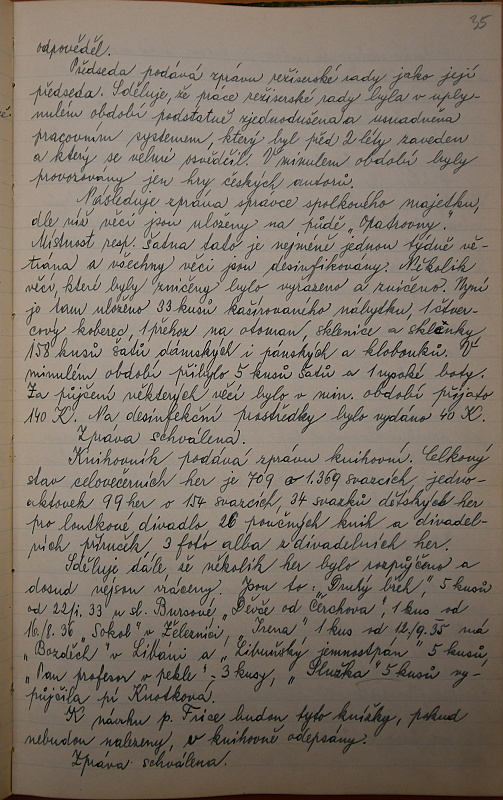 35
odpověděl.
Předseda podává zprávu režiserské rady jako její
předseda. Sděluje, že práce režiserské rady byla v uply-
nulém období podstatně zjednodušena a usnadněna
pracovním systemem, který byl před 2 léty zaveden
a který se velmi osvědčil. V minulém období byly
provozovány jen hry českých autorů.
Následuje zpráva správce spolkového majetku,
dle níž věci jsou uloženy na půdě „Opatrovny“.
Místnost resp. šatna tato je nejméně jednou týdně vě-
trána a všechny věci jsou desinfikovany. Několik
věcí, které byly zničeny bylo vyřazeno a zničeno. Nyní
je tam uloženo 33 kusů kašírovaného nábytku, 1 čtver-
cový koberec, 1 přehoz na otoman, sklenice a sklenky
158 kusů šatů dámských i pánských a klobouků. V
minulém období přibylo 5 kusů šatů a 1 vysoké boty.
Za půjčení některých věcí bylo v min. období přijato
140 K. Na desinfekční prostředky bylo vydáno 40 K.
Zpráva schválena.
Knihovník podává zprávu knihovní. Celkový
stav celovečerních her je 709 o 1.369 svazcích, jedno-
aktovek 99 her o 154 svazcích, 34 svazků dětských her
pro loutkové divadlo 26 poučných knih a divadel-
ních příruček, 3 foto alba z divadelních her.
Sděluje dále, že několik her bylo rozpůjčeno a
dosud nejsou vráceny. Jsou to: „Druhý břeh“, 5 kusů
od 22/1. 33 u sl. Bursové „Děvče od Čerchova“, 1 kus od
16./8. 36 „Sokol“ v Železnici, „Irena“ 1 kus od 12./9. 35 má
„Bozděch“ v Libáni a „Libuňský jemnostpán“ 5 kusů,
„Pan profesor v pekle“ - 3 kusy, „Služka“ 5 kusů vy-
půjčila pí Knotková.
K návrhu p. Frice budou tyto knížky, pokud
nebudou nalezeny, v knihovně odepsány.
Zpráva schválena.